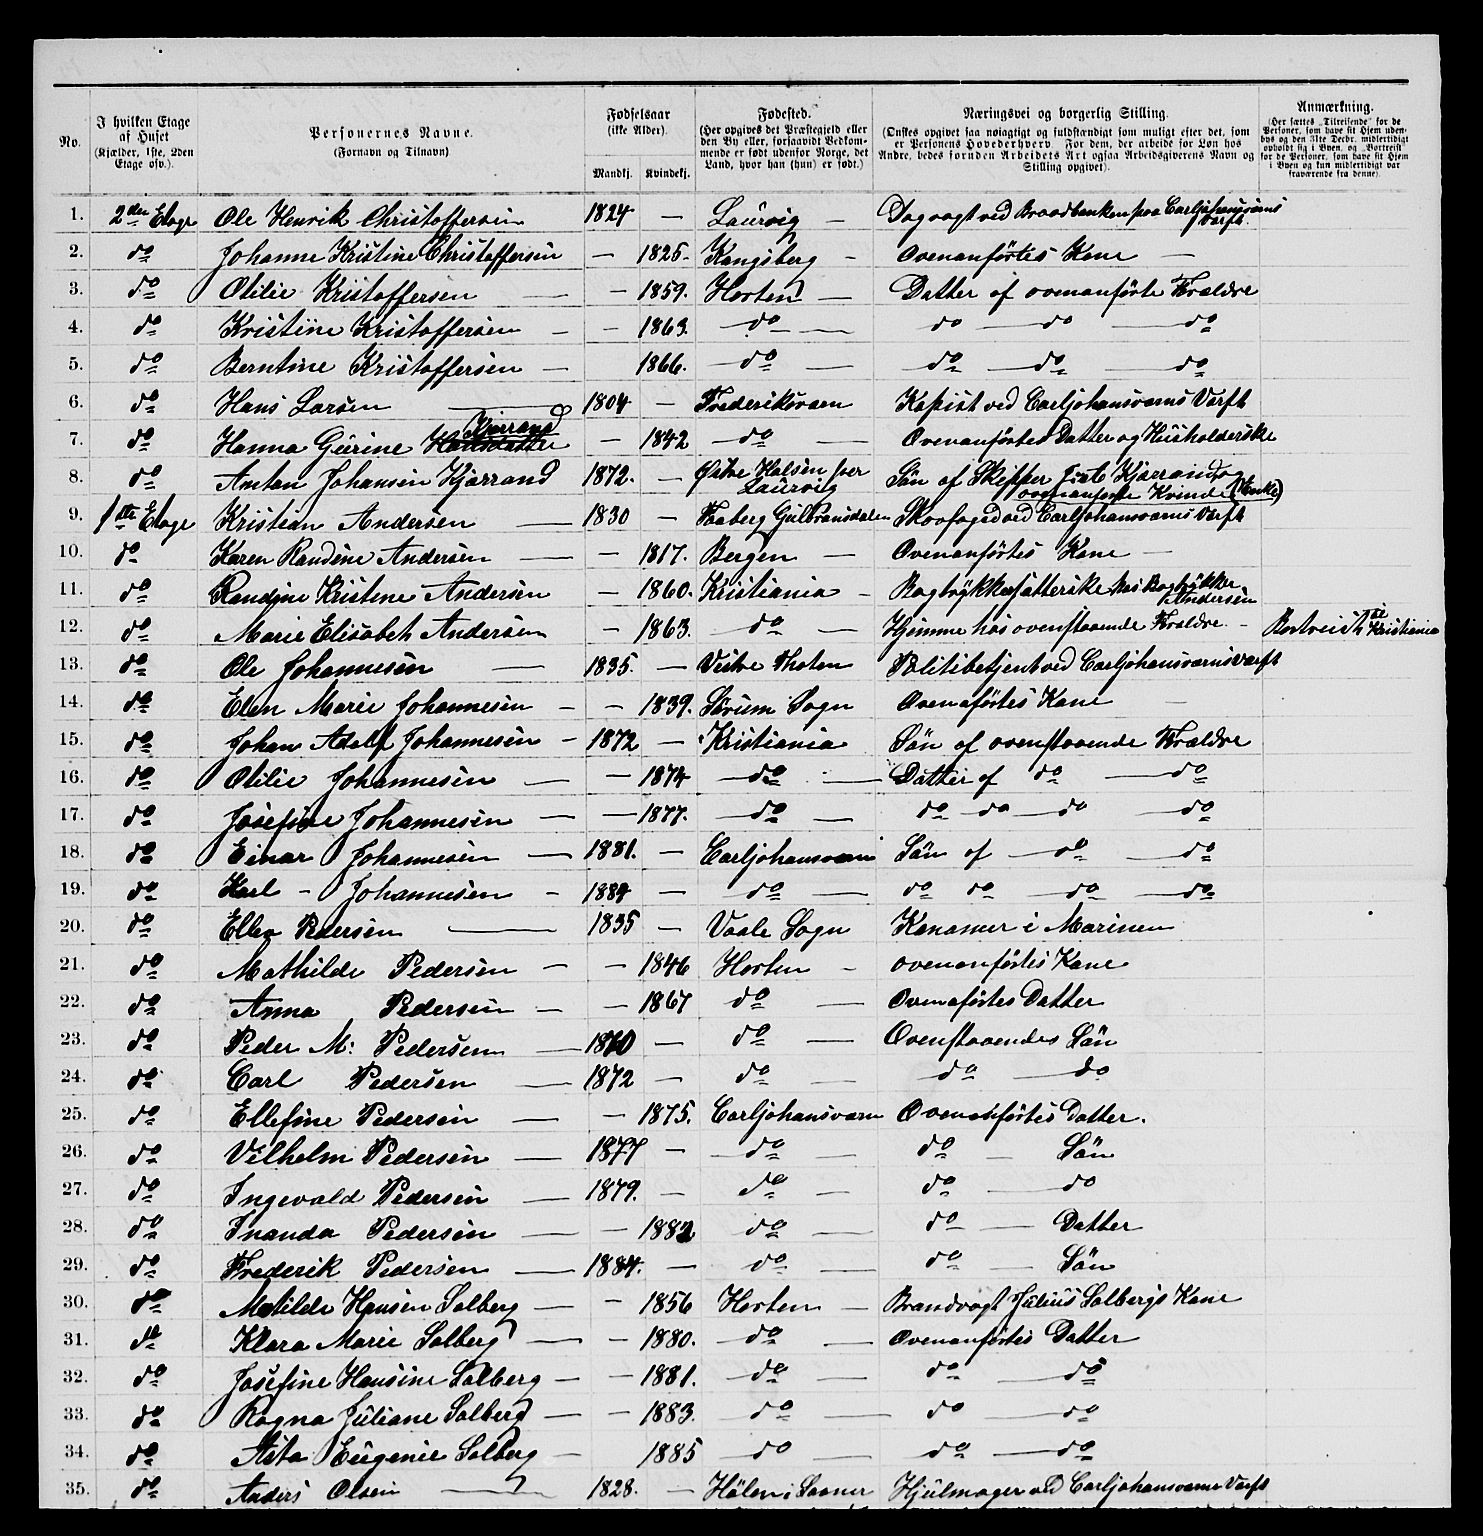 No. | I hvilken Etage af Huset (Kjælder, 1ste, 2den Etage osv.). | Personernes Navne. (Fornavn og Tilnavn) | Fødselsaar (ikke Alder). Mandkj. | Kvindekj. | Fødested. (Her opgives det Præstegjeld eller den By eller, forsaavidt Vedkommende er født udenfor Norge, det Land, hvor han (hun) er født). | Næringsvei og borgerlig Stilling. (Ønskes opgivet saa nøiagtigt og fuldstændigt som muligt efter det, som er Personens Hovederhverv. For dem, der arbeide for Løn hos Andre, bedes foruden Arbeidets Art ogsaa Arbeidsgiverens Navn og Stilling opgivet). | Anmærkning. (Her sættes „Tilreisende" for de Personer, som have sit Hjem udenbys og den 31te Decbr. midlertidigt opholdt sig i Byen, og „Bortreist" for de Personer, som have sit Hjem i Byen og kun midlertidigt var fraværende fra denne).
1. 2den Etage Ole Henrik Christoffersen 1824 — Laurvig — Dagvagt ved Braadbanken paa Carljohansværns Værft
2. do Johanne Kristine Christoffersen — 1825 - Kongsberg - Ovenanförtes Kone —
3. do Otilie Kristoffersen — — 1859. Horten — Datter af ovenanförte Forældre
4. do Kristine Kristoffersen — — 1863. do — do — do — do
5. do Berntine Kristoffersen — 1866. do — do — do — do
6. do Hans Larsen — 1804 — Frederiksværn Kopist ved Carljohansværns Værft
7. do Hanna Gurine Hansdatter Kjærrand — 1842 — do — Ovenanförtes Datter og Husholderske
8. do Anton Johansen Kjærrand 1872. — Østre Halsen per Laurvig Sön af Skipper Kjærrand og ovenanförte Kvinde (Enke)
9. 1ste Etage Kristian Andersen — 1830 — Faaberg Gulbransdalen Skovfoged ved Carljohansværns Værft
10. do Karen Randine Andersen — — 1817. Bergen — Ovenanförtes Kone —
11. do Randine Kristene Andersen — 1860. Kristiania - Bogtrykkersætterske hos Bogtrykker Andersen
12. do Marie Elisabeh Andersen — 1863. do — Hjemme hos ovenstaaende Forældre. - Bortreist til Kristiania
13. do Ole Johannesen — 1835. — Vestre Thoten Politibetjent ved Carljohansværns Værft
14. do Elen Marie Johannesen - — 1839. Sörum Sogn Ovenaförtes Kone —
15. do Johan Adolf Johannesen - 1872 — Kristiania Sön af ovenstaaende Forældre
16. do Otilie Johannesen — — 1874 — do — Datter af do — do
17. do Josefine Johannesen — — 1877. — do — do do do do
18. do Einar Johannesen — 1881. — Carljohansværn Sön af — do — do
19. do Karl - Johannesen - 1884 — do — do do — do — do
20. do Ellev Pedersen — 1835 — Vaale Sogn Kanoner i Marinen
21. do Mathilde Pedersen - — 1846 Horten - ovenanförtes Kone
22. do Anna Pedersen — — 1867 do — Ovenaförtes Datter
23. do Peder M: Pedersen — 1870 — do — Ovenstaaendes Sön
24. do Carl Pedersen — 1872 — do — do — do
25. do Ellefine Pedersen — — 1875. Carljohansværn Ovenanförtes Datter.
26. do Vilhelm Pedersen — 1877 — do — do — Sön
27. do Ingevald Pedersen — 1879. — do — do — do
28. do Inanda Pedersen — — 1882 do — do — Datter
29. do Frederik Pedersen — 1884. — do — do — Sön
30. do Matilde Hansen Solberg — — 1856 Horten — Brandvagt Julius Solbergs Kone
31. do Klara Marie Solberg — — 1880. do — Ovenanförtes Datter
32. do Josefine Hansine Solberg — — 1881. do — do — do
33. do Ragna Juliane Solberg — — 1883. do — do — do
34. do Asta Eugenie Solberg — 1885 do do — do
35. do Anders Olsen — 1828. — Hölen i Saaner Hjulmager ved Carljohansværns Værft